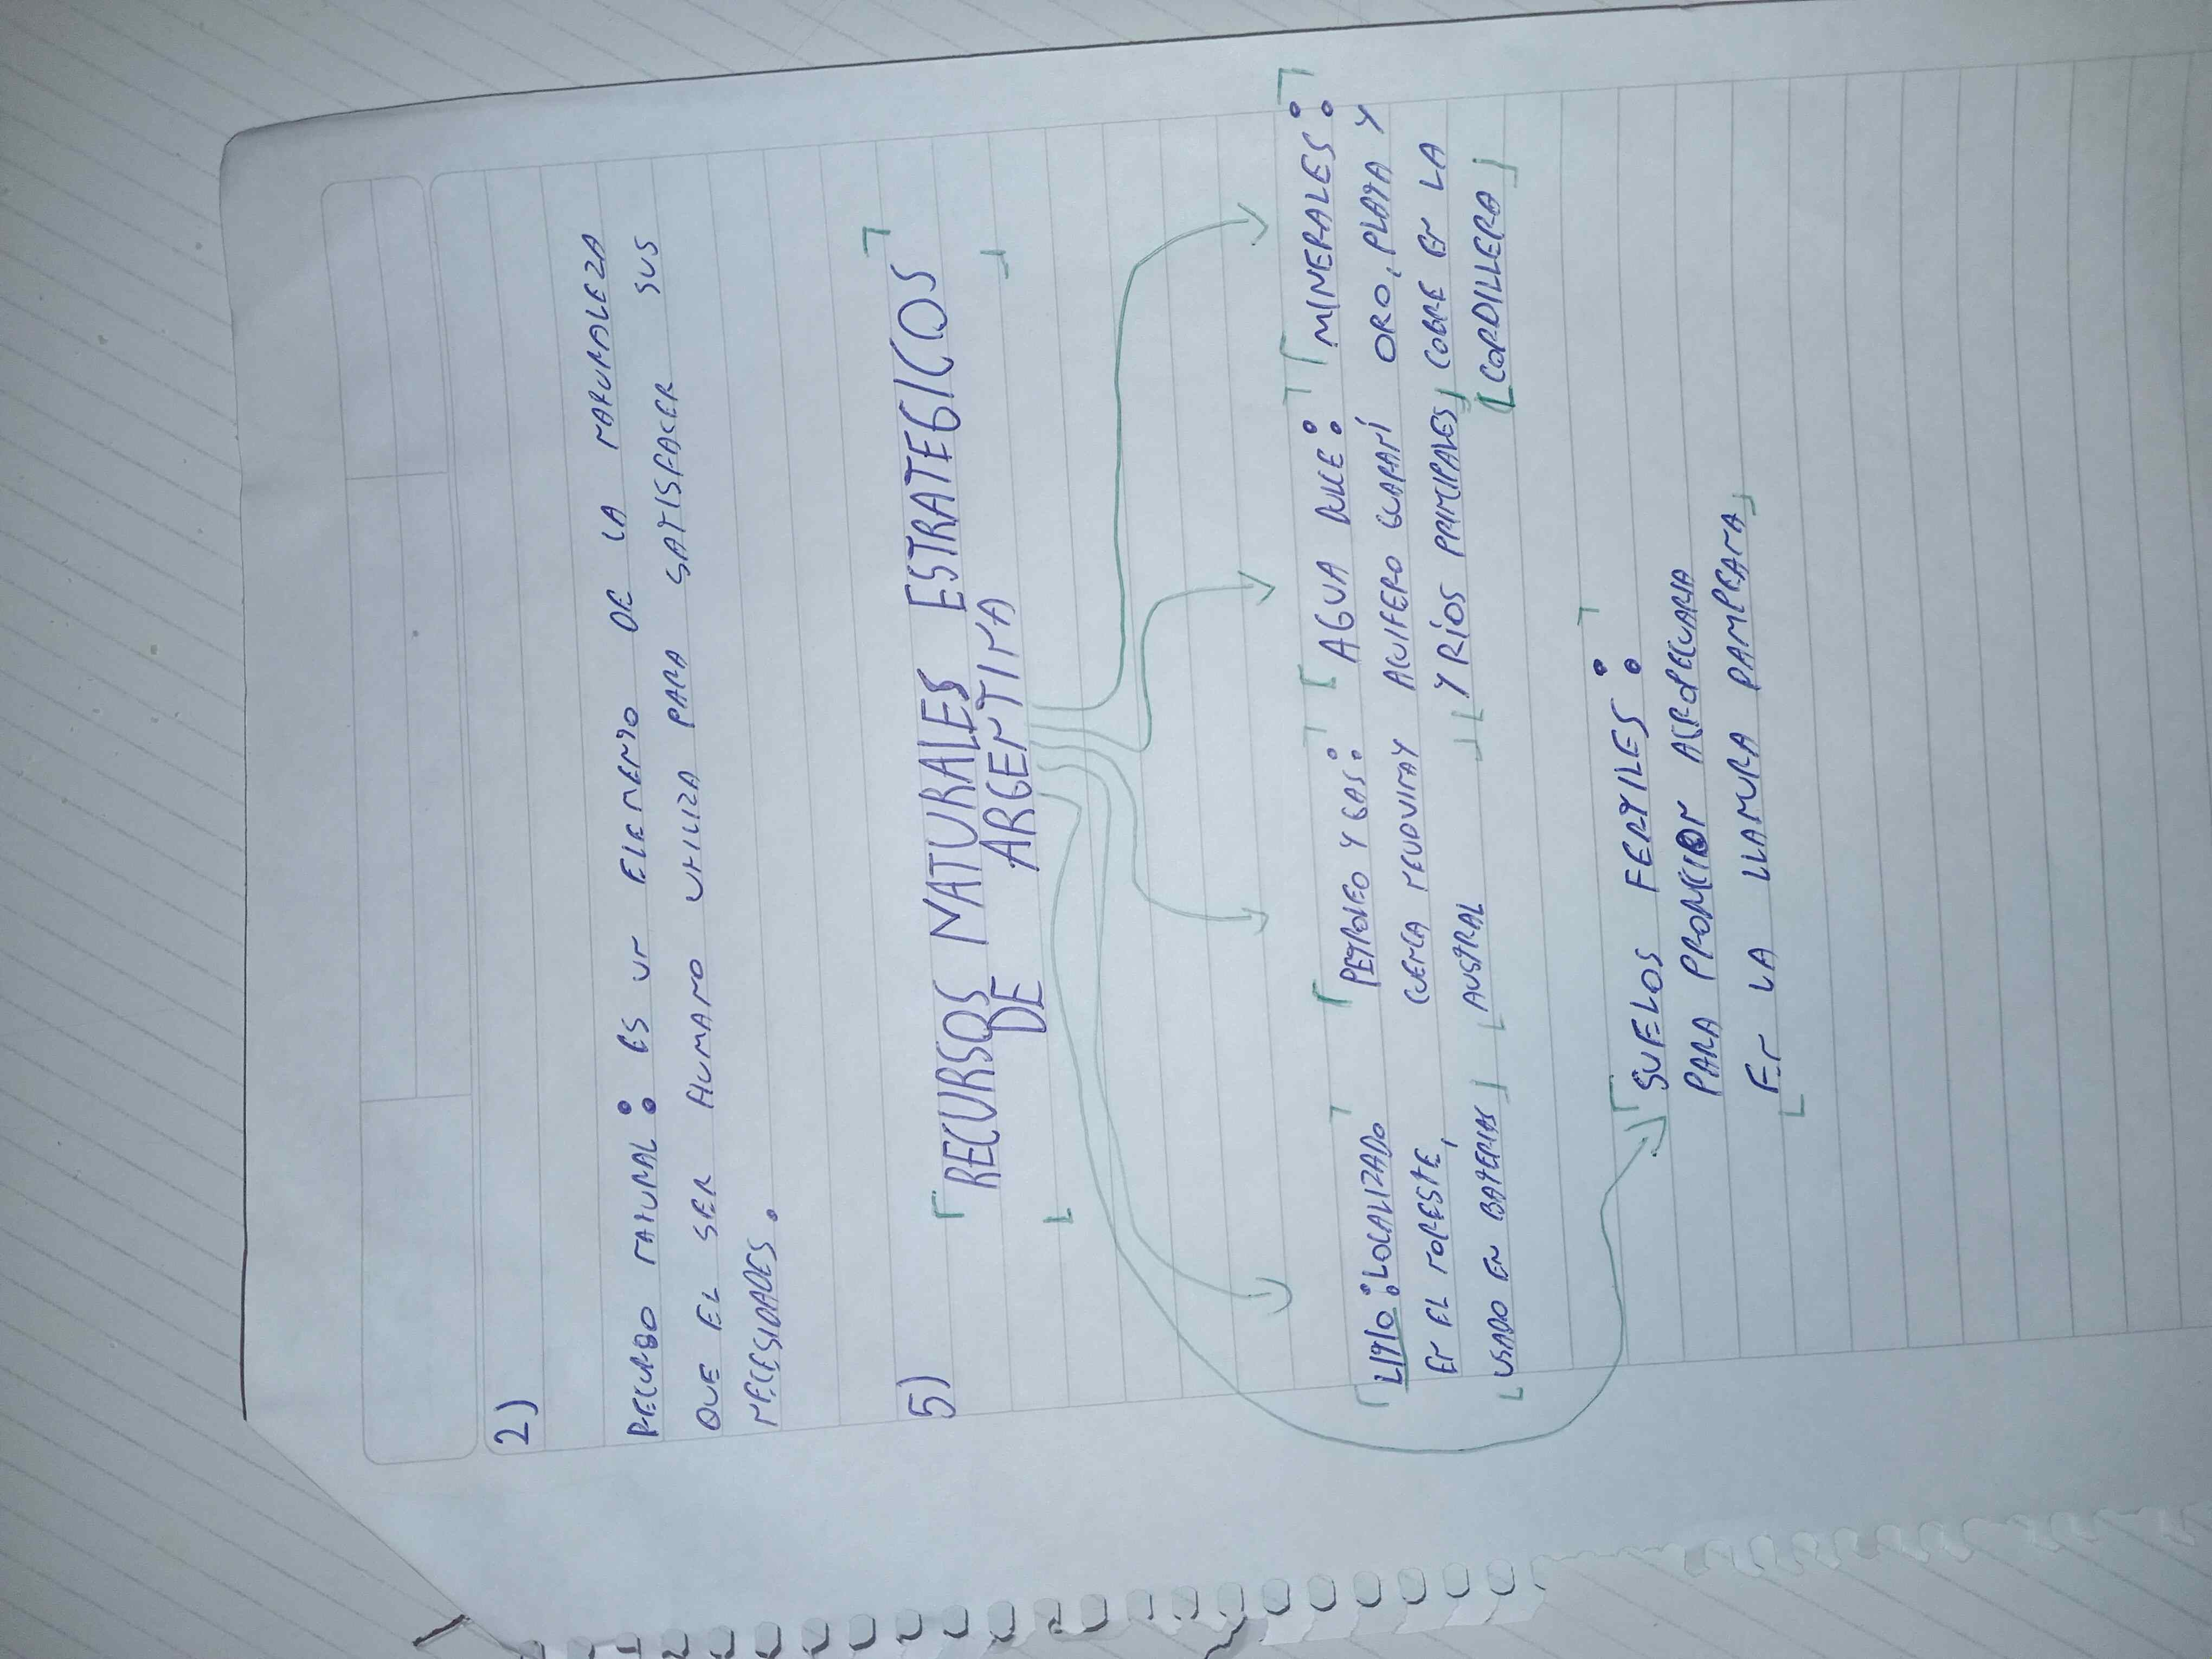 2)
RECURSO NATURAL: ES UN ELEMENTO DE LA NATURALEZA
QUE EL SER HUMANO UTILIZA PARA SATISFACER SUS
NECESIDADES.
5)
RECURSOS NATURALES ESTRATEGICOS
DE ARGENTINA
LITIO: LOCALIZADO
EN EL NORESTE,
USADO EN BATERIAS
PETROLEO Y GAS:
CUENCA NEUQUINA Y
AUSTRAL
AGUA DULCE:
ACUIFERO GUARANÍ
Y RÍOS PRINCIPALES
MINERALES:
ORO, PLATA Y
COBRE EN LA
CORDILLERA
SUELOS FERTILES:
PARA PRODUCCION AGROPECUARIA
EN LA LLANURA PAMPEANA